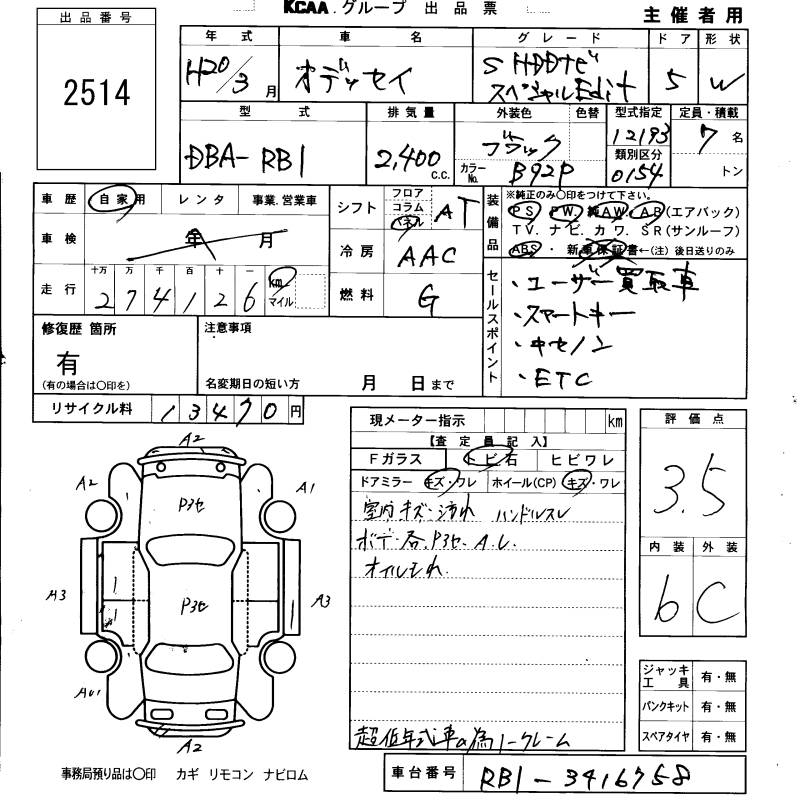 KCAA.グループ 出品票
主催者用
出品番号
2514
年式 車名 グレード ドア 形状
H20/3月 オデッセイ S HDDナビ スペシャルEdit 5 W
型式 排気量 外装色 色替 型式指定 定員・積載
DBA-RB1 2,400 c.c. ブラック 12193 7名
カラーNo. B92P 類別区分 0154 トン
車歴 自家用 レンタ 事業.営業車
シフト フロア コラム パネル AT
装備品 ※純正のみ○印をつけて下さい。
PS. PW. 純AW. AB(エアバック)
TV. ナビ. カワ. SR(サンルーフ)
ABS・新車保証書←(注)後日送りのみ
車検 年 月
冷房 AAC
走行 十万 万 千 百 十 一
274126 km マイル
燃料 G
セールスポイント
・ユーザー買取車
・スマートキー
・キセノン
・ETC
修復歴 箇所
有
(有の場合は○印を)
注意事項
名変期日の短い方 月 日まで
リサイクル料 13470円
現メーター指示 km
【査定員記入】
Fガラス トビ石 ヒビワレ
ドアミラー キズ・ワレ ホイール(CP) キズ・ワレ
室内キズ・汚れ ハンドルスレ
ボデー各.P3セ.A.U.
オイルもれ.
超低年式車の為ノークレーム
評価点
3.5
内装 外装
b C
ジャッキ工具 有・無
パンクキット 有・無
スペアタイヤ 有・無
A2
A2 A1
P3セ
A3 P3セ A3
AU1
A2
事務局預り品は○印 カギ リモコン ナビロム
車台番号 RB1-3416758